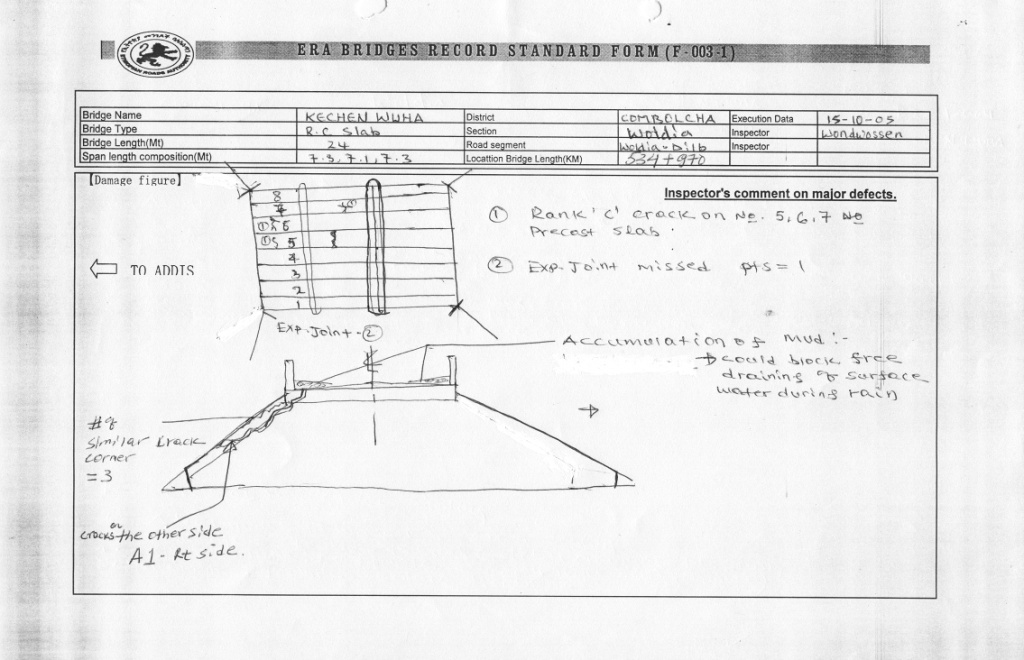 ERA BRIDGES RECORD STANDARD FORM (F-003-1)
Bridge Name KECHEN WUHA District COMBOLCHA Execution Data 15-10-05
Bridge Type R.C Slab Section Woldia Inspector Wondwossen
Bridge Length(Mt) 24 Road segment Woldia-Dilb Inspector
Span length composition(Mt) 7.3, 7.1, 7.3 Locattion Bridge Length(KM) 534+970
[Damage figure]
Inspector's comment on major defects.
8
7
① 6
① 5
4
3
2
1
TO ADDIS
Exp. Joint - ②
① Rank 'C' crack on No. 5, 6, 7 No
Precast slab.
② Exp. Joint missed pts = 1
Accumulation of Mud :-
could block free
draining of surface
water during rain
# of
Similar Crack
corner
= 3
cracks on the other side
A1 - Rt side.